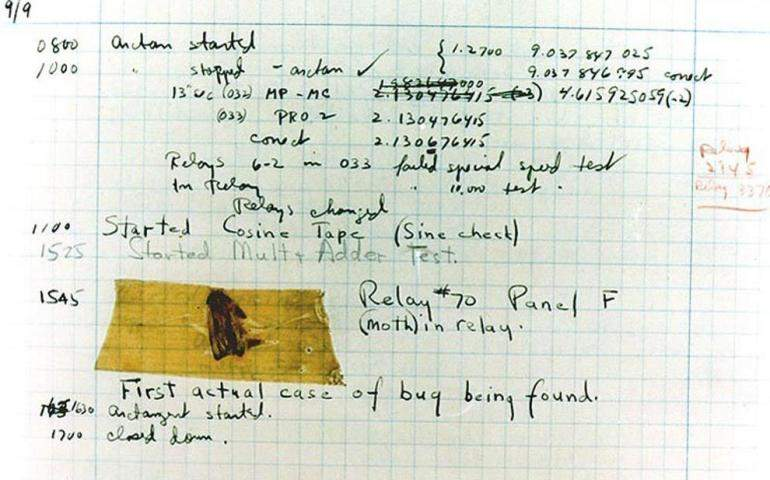 9/9
0800 arctan started { 1.2700 9.037 847 025
1000 " stopped - arctan ✓ 9.037 846 995 correct
13"uc (032) MP - MC 2.130476415 4.615925059(-2)
(033) PRO 2 2.130476415
correct 2.130676415
Relays 6-2 in 033 failed special speed test
In Relay " 10,000 test "
Relays changed
1100 Started Cosine Tape (Sine check)
1525 Started Mult + Adder Test.
1545 Relay #70 Panel F
(moth) in relay.
First actual case of bug being found.
1630 arctangent started.
1700 closed down.
Relay
2145
Relay 3370